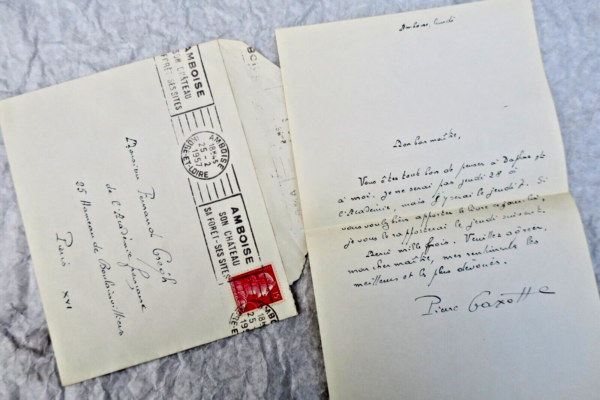 AMBOISE
SON CHÂTEAU
SA FORET-SES SITES
AMBOISE
18H45
25-2
1957
INDRE-ET-LOIRE
AMBOISE
SON CHÂTEAU
SA FORET-SES SITES
Monsieur Fernand Gregh
de l'Académie française
25 Hameau de Boulainvilliers
Paris XVI
Amboise, lundi
Mon bon maître,
Vous êtes trop bon de penser à
à moi. Je ne serai pas jeudi 28 à
l'Académie, mais j'y serai le jeudi 7. Si
vous voulez bien apporter le livre
je vous le rapporterai le jeudi suivant.
Merci mille fois. Veuillez agréer,
mon cher maître, mes sentiments les
meilleurs et les plus dévoués.
Pierre Gaxotte